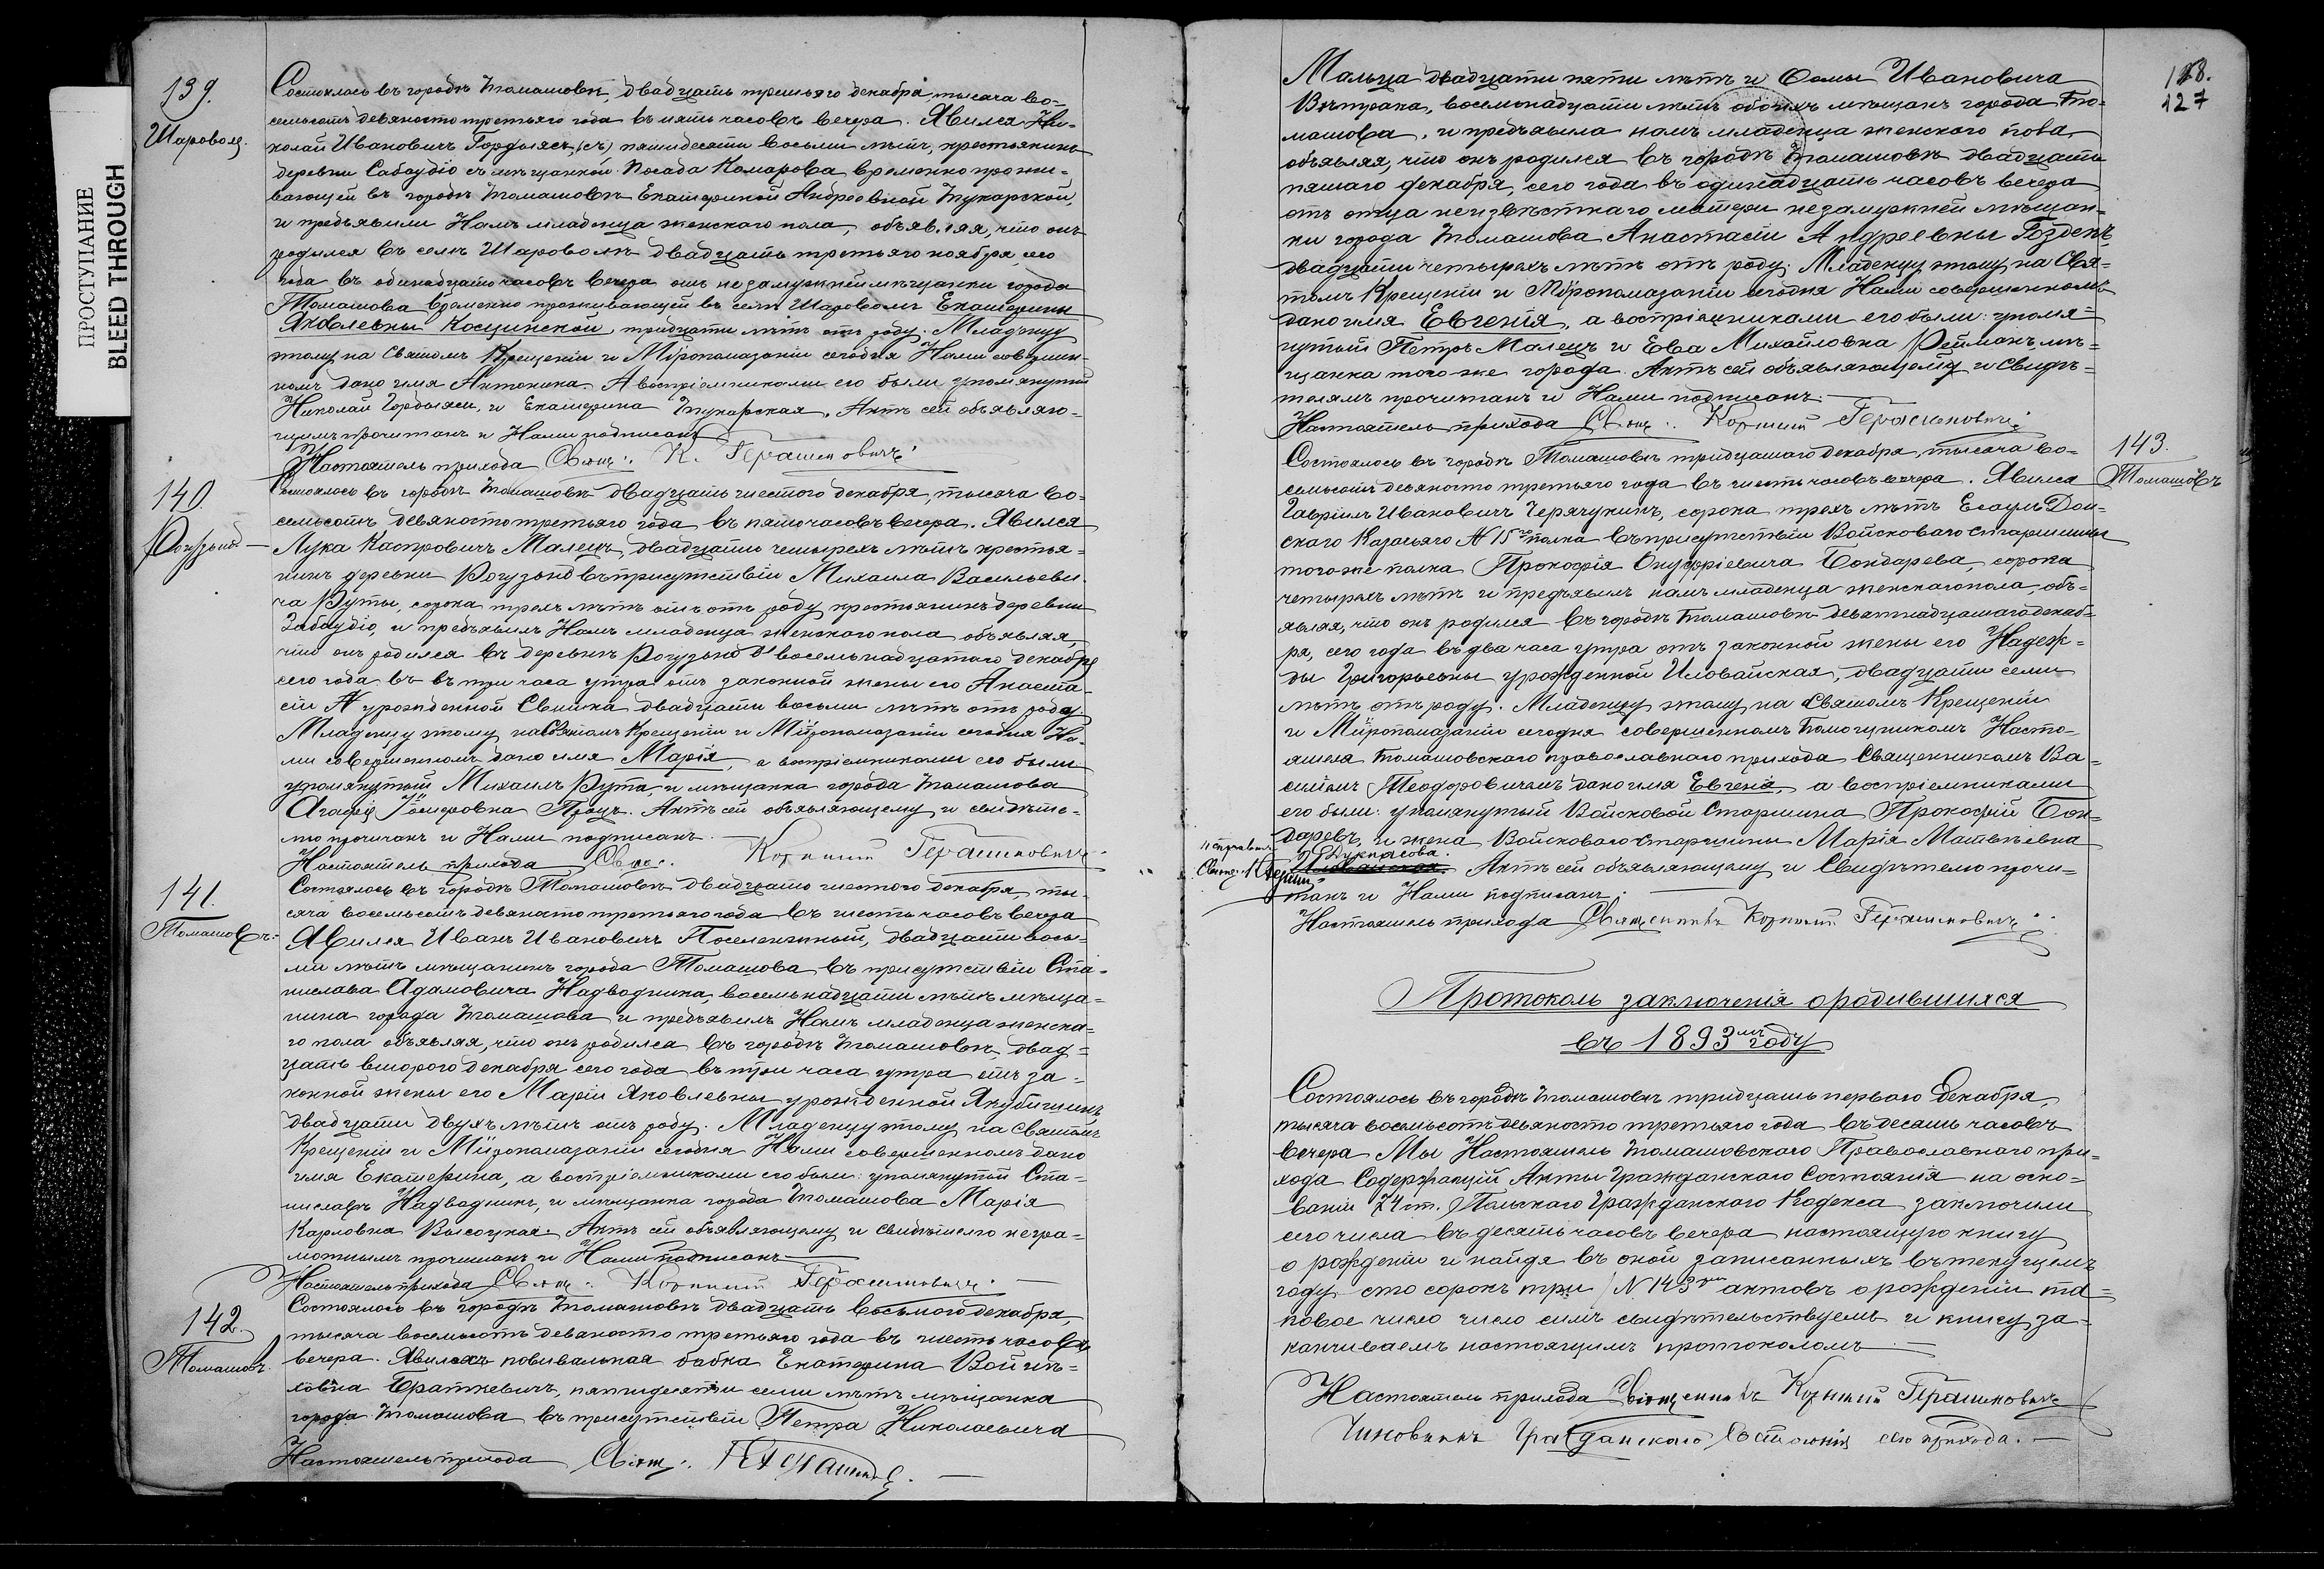 ПРОСТУПАНИЕ
BLEED THROUGH
139.
Шароволя.
Состоялось въ городѣ Томашовѣ, двадцать третьяго декабря, тысяча во-
семьсотъ девяносто третьяго года въ пять часовъ вечера. Явился Ни-
колай Ивановичъ Гордыясъ, (съ) пятидесяти восьми лѣтъ, крестьянинъ
деревни Сабаудіо съ мѣщанкой Посада Комарова временно прожи-
вающей въ городѣ Томашовѣ Екатериной Андреевной Тукарской,
и предъявили Намъ младенца женскаго пола, объявляя, что онъ
родился въ селѣ Шароволѣ двадцать третьяго ноября, сего
года въ одинадцать часовъ вечера отъ незамужней мѣщанки города
Томашова временно проживающей въ селѣ Шароволѣ Екатерины
Яковлевны Косцинской, тридцати лѣтъ отъ роду. Младенцу
этому на Святомъ Крещеніи и Мѵропомазаніи сегодня Нами совершен-
номъ дано имя Антонина. А воспріемниками его были упомянутый
Николай Гордыясъ, и Екатерина Тукарская. Актъ сей объявляю-
щимъ прочитанъ и Нами подписанъ
Настоятель прихода Свящ: К. Герасимовичъ
140.
Рогузьно
Состоялось въ городѣ Томашовѣ двадцать шестого декабря, тысяча во-
семьсотъ девяносто третьяго года въ пять часовъ вечера. Явился
Лука Каспровичъ Малецъ, двадцати четырехъ лѣтъ крестья-
нинъ деревни Рогузьно въ присутствіи Михаила Васильеви-
ча Руты, сорока трехъ лѣтъ отъ отъ роду крестьянинъ деревни
Забаудіо, и предъявилъ Намъ младенца женскаго пола объявляя,
что онъ родился въ деревнѣ Рогузьно восемьнадцатаго декабря
сего года въ въ три часа утра отъ законной жены его Анаста-
сіи А урожденной Свинка двадцати восьми лѣтъ отъ роду.
Младенцу этому на Святомъ Крещеніи и Мѵропомазаніи сегодня На-
ми совершенномъ дано имя Марія, а воспріемниками его были
упомянутый Михаилъ Рута, и мѣщанка города Томашова
Агафія Процъ. Актъ сей объявляющему и свидѣте-
лю прочитанъ и Нами подписанъ.
Настоятель прихода Свящ. Корнилій Герасимовичъ
141.
Томашовъ.
Состоялось въ городѣ Томашовѣ двадцать шестого декабря, ты-
сяча восемьсотъ девяносто третьяго года въ шесть часовъ вечера
Явился Иванъ Ивановичъ Поселенный, двадцати вось-
ми лѣтъ мѣщанинъ города Томашова въ присутствіи Ста-
нислава Адамовича Надводника, восемьнадцати лѣтъ мѣща-
нина города Томашова и предъявилъ Намъ младенца женска-
го пола объявляя, что онъ родился въ городѣ Томашовѣ двад-
цать второго декабря сего года въ три часа утра отъ за-
конной жены его Маріи Яковлевны урожденной Якубишинъ
двадцати двухъ лѣтъ отъ роду. Младенцу этому на Святомъ
Крещеніи и Мѵропомазаніи сегодня Нами совершенномъ дано
имя Екатерина, а воспріемниками его были: упомянутый Ста-
ниславъ Надводникъ, и мѣщанка города Томашова Марія
Карловна Высоцкая. Актъ сей объявляющему и свидѣтелю негра-
мотнымъ прочитанъ и Нами подписанъ
Настоятель прихода Свящ: Корнилій Герасимовичъ.
142.
Томашовъ.
Состоялось въ городѣ Томашовѣ двадцать восьмого декабря,
тысяча восемьсотъ девяносто третьяго года въ шесть часовъ
вечера. Явилась повивальная бабка Екатерина Войцѣ-
ховна Браткевичъ, пятидесяти семи лѣтъ мѣщанка
города Томашова въ присутствіи Петра Николаевича
Настоятель прихода Свящ:
128.
127
Мальца двадцати пяти лѣтъ и Ѳомы Ивановича
Вѣтрака, восемьнадцати лѣтъ обоихъ мѣщанъ города То-
машова, и предъявила намъ младенца женского пола,
объявляя, что онъ родился въ городѣ Томашовѣ двадцать
пятаго декабря, сего года въ одинадцать часовъ вечера
отъ отца неизвѣстнаго матери незамужней мѣщан-
ки города Томашова Анастасіи Андреевны Гоздекъ,
двадцати четырехъ лѣтъ отъ роду. Младенцу этому на Свя-
томъ Крещеніи и Мѵропомазаніи сегодня Нами совершенномъ
дано имя Евгенія, а воспріемниками его были: упомя-
нутый Петръ Малецъ и Ева Михайловна Рейманъ мѣ-
щанка того же города. Актъ сей объявляющему и свидѣ-
телямъ прочитанъ и Нами подписанъ.
Настоятель прихода Свящ: Корнилій Герасимовичъ.
143.
Томашовъ
Состоялось въ городѣ Томашовѣ тридцатаго декабря, тысяча во-
семьсотъ девяносто третьяго года въ шесть часовъ вечера. Явился
Гавріилъ Ивановичъ Черячукинъ, сорока трехъ лѣтъ Есаулъ Дон-
скаго Казачьяго № 15го полка въ присутствіи Войсковаго старшины
того же полка Прокофія Онуфріевича Бондарева, сорока
четырехъ лѣтъ и предъявилъ намъ младенца женскаго пола, объ-
являя, что онъ родился въ городѣ Томашовѣ девятнадцатаго декаб-
ря, сего года въ два часа утра отъ законной жены его Надеж-
ды Григорьевны урожденной Иловайская, двадцати семи
лѣтъ отъ роду. Младенцу этому на Святомъ Крещеніи
и Мѵропомазаніи сегодня совершенномъ Помощникомъ Насто-
ятеля Томашовского православнаго прихода Священникомъ Ва-
силіемъ Теодоровичемъ дано имя Евгенія, а воспріемниками
его были: упомянутый Войсковой Старшина Прокофій Бон-
даревъ, и жена Войсковаго Старшины Марія Матвѣевна
Актъ сей объявляющему и Свидѣтелю прочи-
танъ и Нами подписанъ.
Настоятель прихода Священникъ Корнилій Герасимовичъ.
Протоколъ заключенія о родившихся
въ 1893мъ году
Состоялось въ городѣ Томашовѣ тридцать первого Декабря,
тысяча восемьсотъ девяносто третьяго года въ десять часовъ
вечера Мы Настоятель Томашовского Православнаго при-
хода Содержащій Акты Гражданскаго Состоянія на осно-
ваніи 74 ст. Польскаго Гражданскаго Кодекса заключили
сего числа въ десять часовъ вечера настоящую книгу
о рожденіи и найдя въ оной записанныхъ въ текущемъ
году сто сорокъ три / № 143 актовъ о рожденіи та-
ковое число число симъ свидѣтельствуемъ и книгу за-
канчиваемъ настоящимъ протоколомъ
Настоятель прихода Священникъ Корнилій Герасимовичъ
Чиновникъ Гражданскаго Состоянія сего прихода.